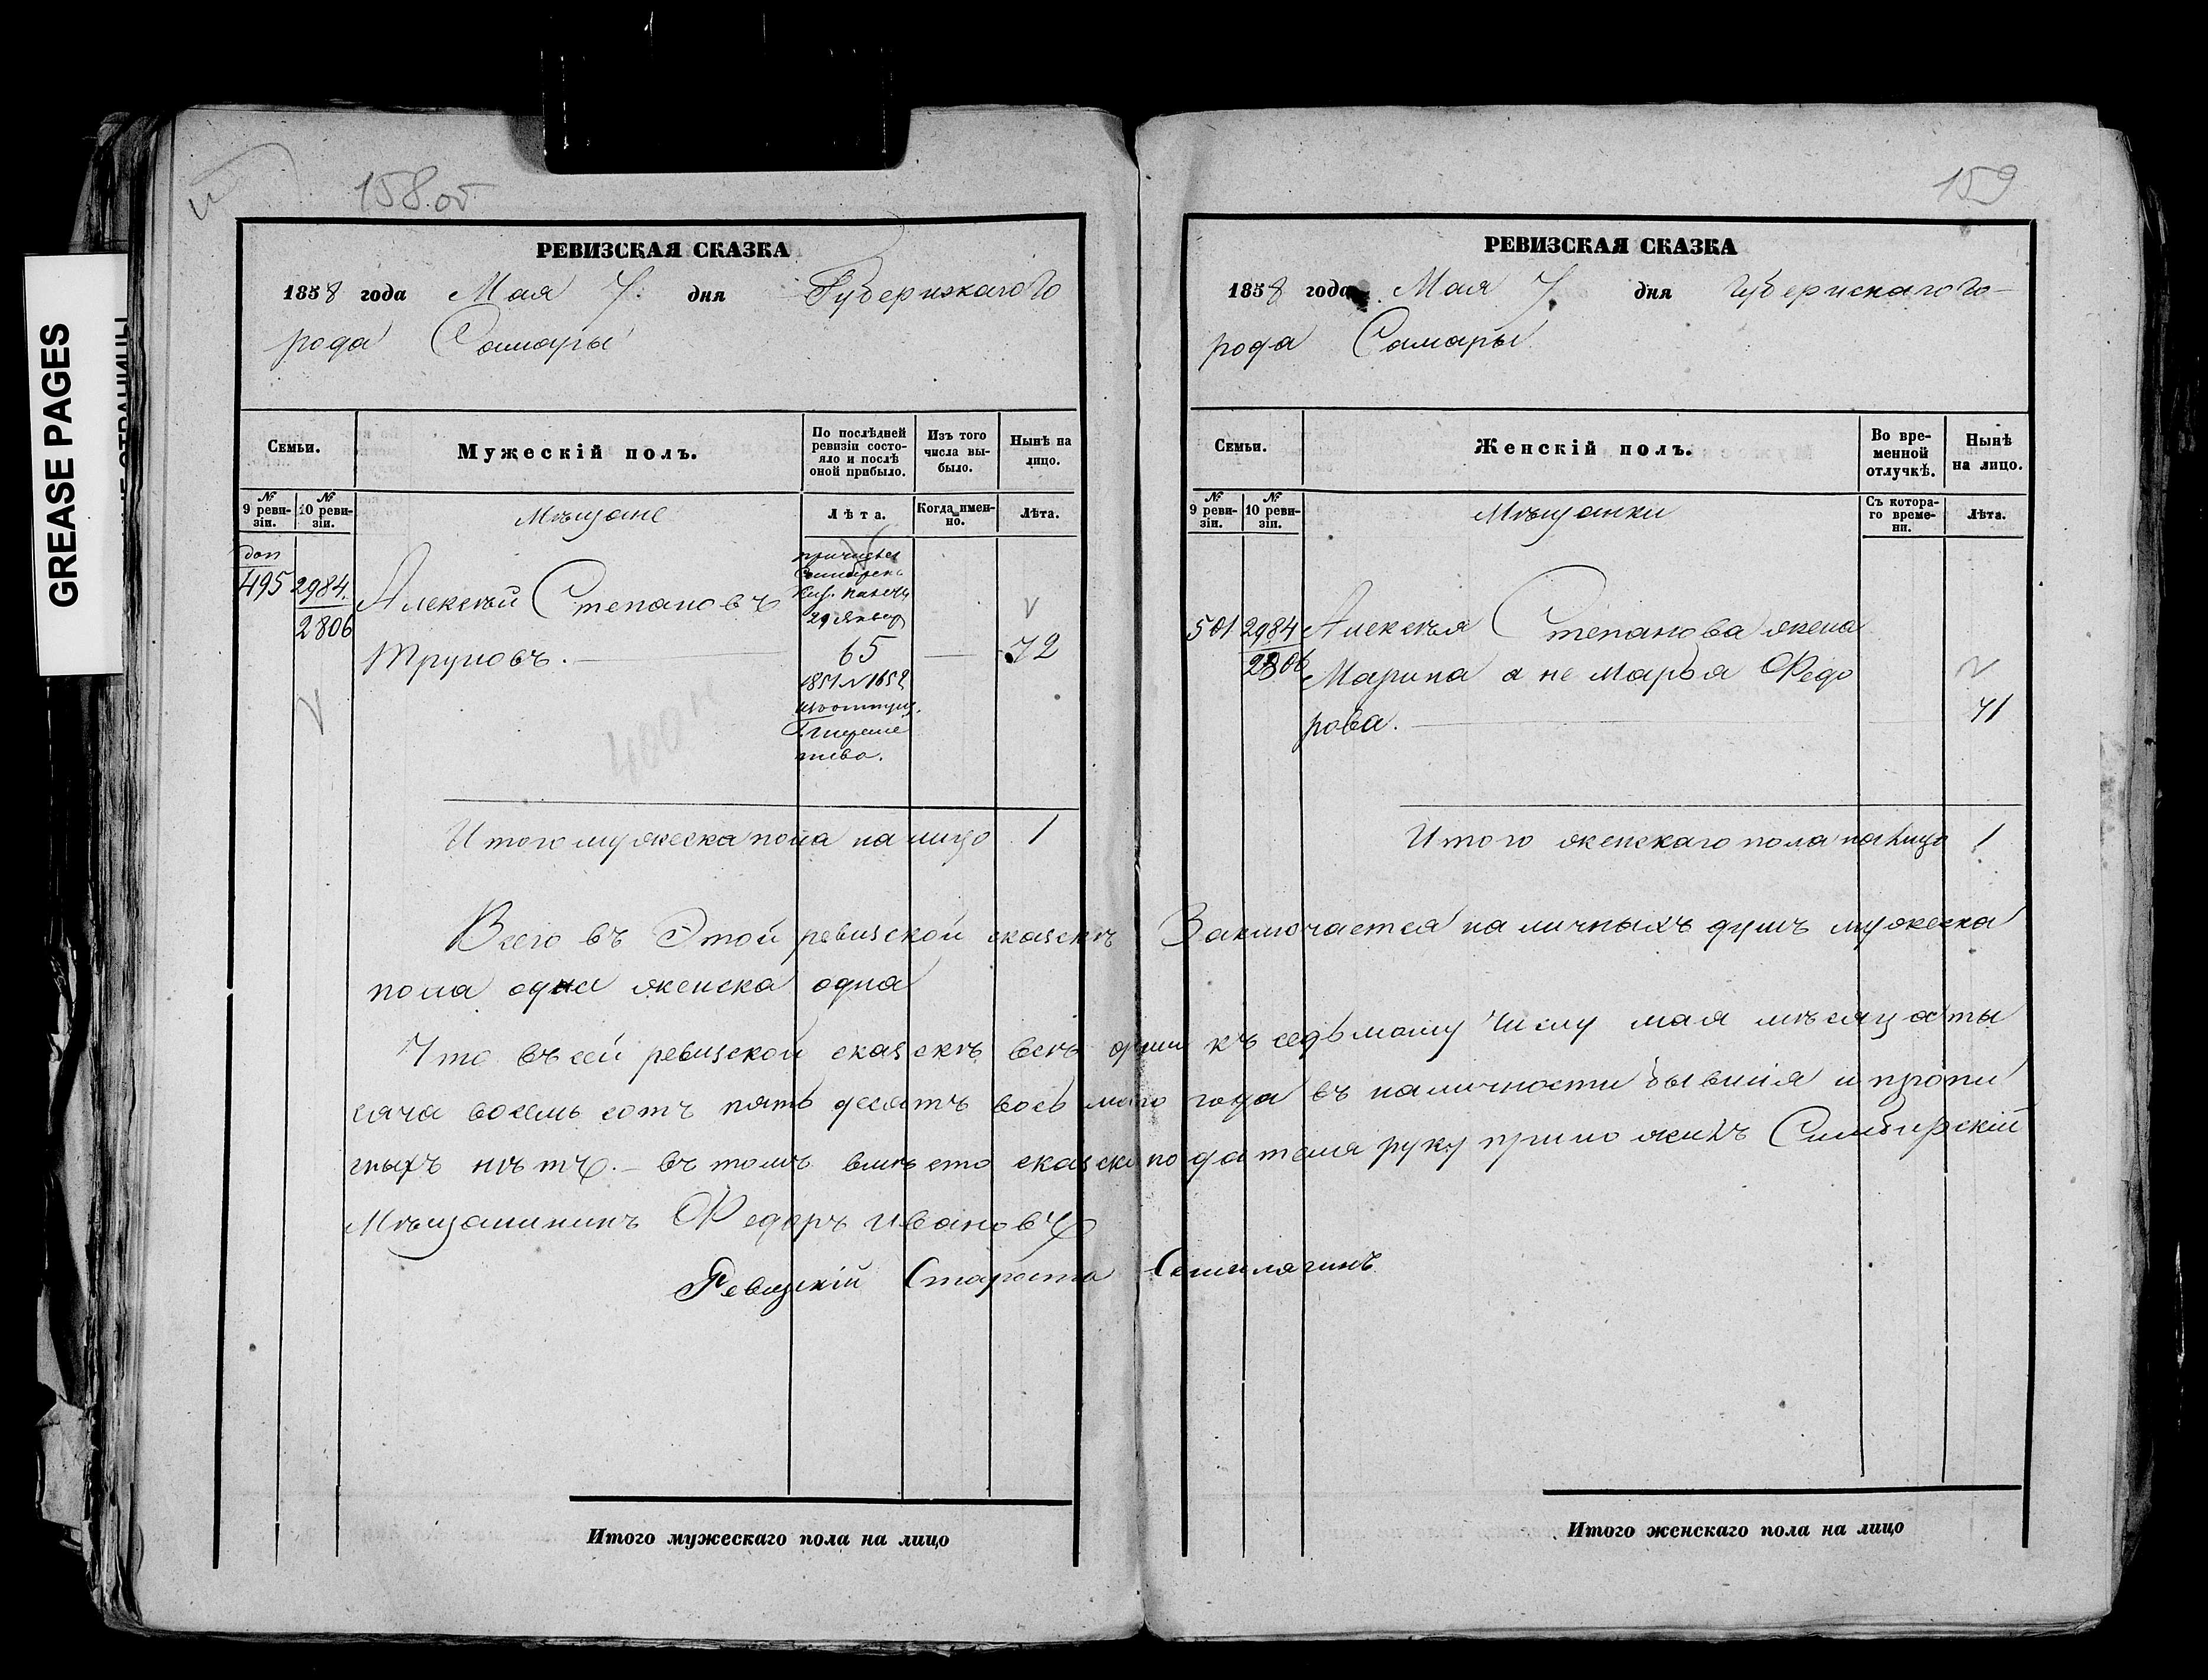 GREASE PAGES
158 об
РЕВИЗСКАЯ СКАЗКА
1858 года Мая 7. дня Губернскаго Го
рода Самары
Семьи.
Мужескій полъ.
По послѣдней ревизіи состояло и послѣ оной прибыло.
Изъ того числа выбыло.
Нынѣ на лицо.
№ 9 ревизіи.
№ 10 ревизіи.
Мѣщане
Лѣта.
Когда именно.
Лѣта.
доп
495
2984.
2806
Алексѣй Степановъ
Труновъ.
причисленъ
Каз. палаты
29 Января
65
1851 № 1652
72
400
Итого мужеска пола на лицо 1
Всего въ Этой ревизской сказскѣ
пола одна женска одна
Что въ сей ревизской сказскѣ всѣ души
сяча восемь сотъ пять десятъ восьмаго
сныхъ нѣтъ. – въ томъ вмѣсто сказскопо
Мѣщанининъ Федоръ Ивановъ
Ревизскій Староста
Итого мужескаго пола на лицо
159
РЕВИЗСКАЯ СКАЗКА
1858 года Мая 7. дня Губернскаго Го–
рода Самары
Семьи.
Женскій полъ.
Во временной отлучкѣ.
Нынѣ на лицо.
№ 9 ревизіи.
№ 10 ревизіи.
Мѣщанки
Съ котораго времени.
Лѣта.
501
2984
2806
Алексѣя Степанова жена
Марина а не Марья Федо
рова.
71
Итого женскаго пола на лицо 1
Заключается наличныхъ душъ мужеска
къ седьмому числу мая мѣсяца ты
года въ наличности бывшія и пропи
дателя руку приложилъ Симбирскій
Итого женскаго пола на лицо